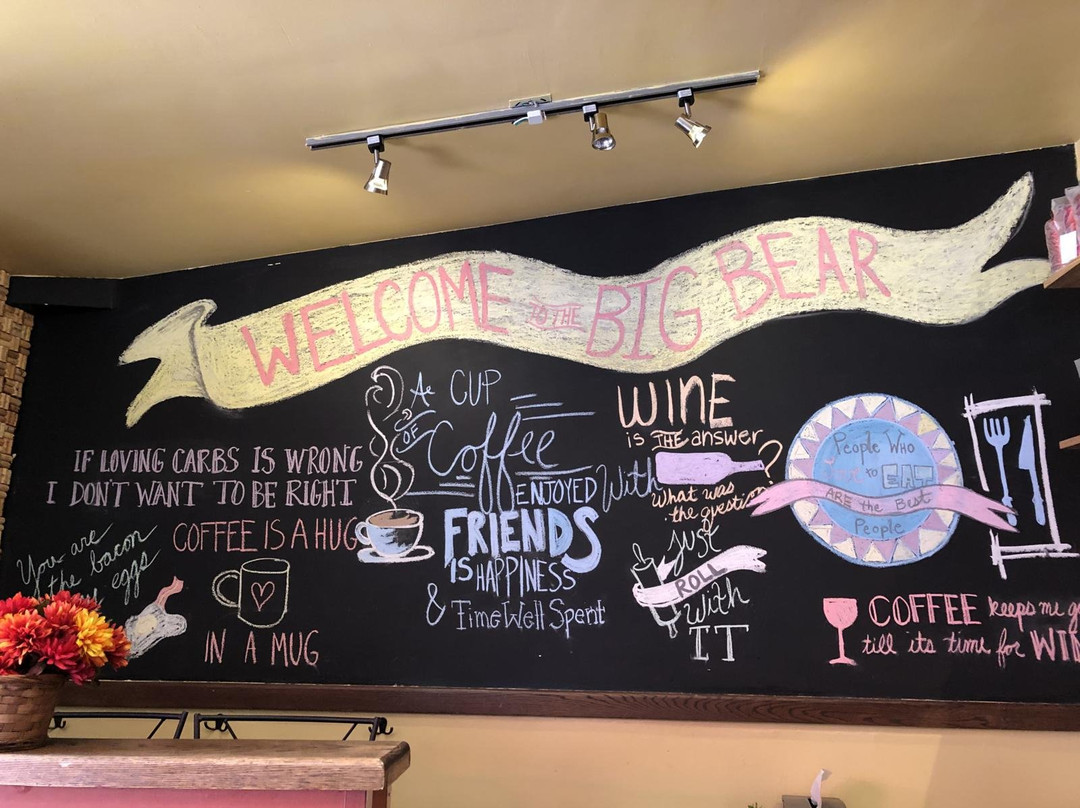 WELCOME TO THE BIG BEAR
IF LOVING CARBS IS WRONG
I DON'T WANT TO BE RIGHT
You are
the bacon
eggs
COFFEE IS A HUG
IN A MUG
A CUP
OF Coffee
ENJOYED With
FRIENDS
IS HAPPINESS
& Time Well Spent
WINE
is THE answer
What was
the question?
just
ROLL
with
IT
People Who
to EAT
ARE the Best
People
COFFEE keeps me
till its time for